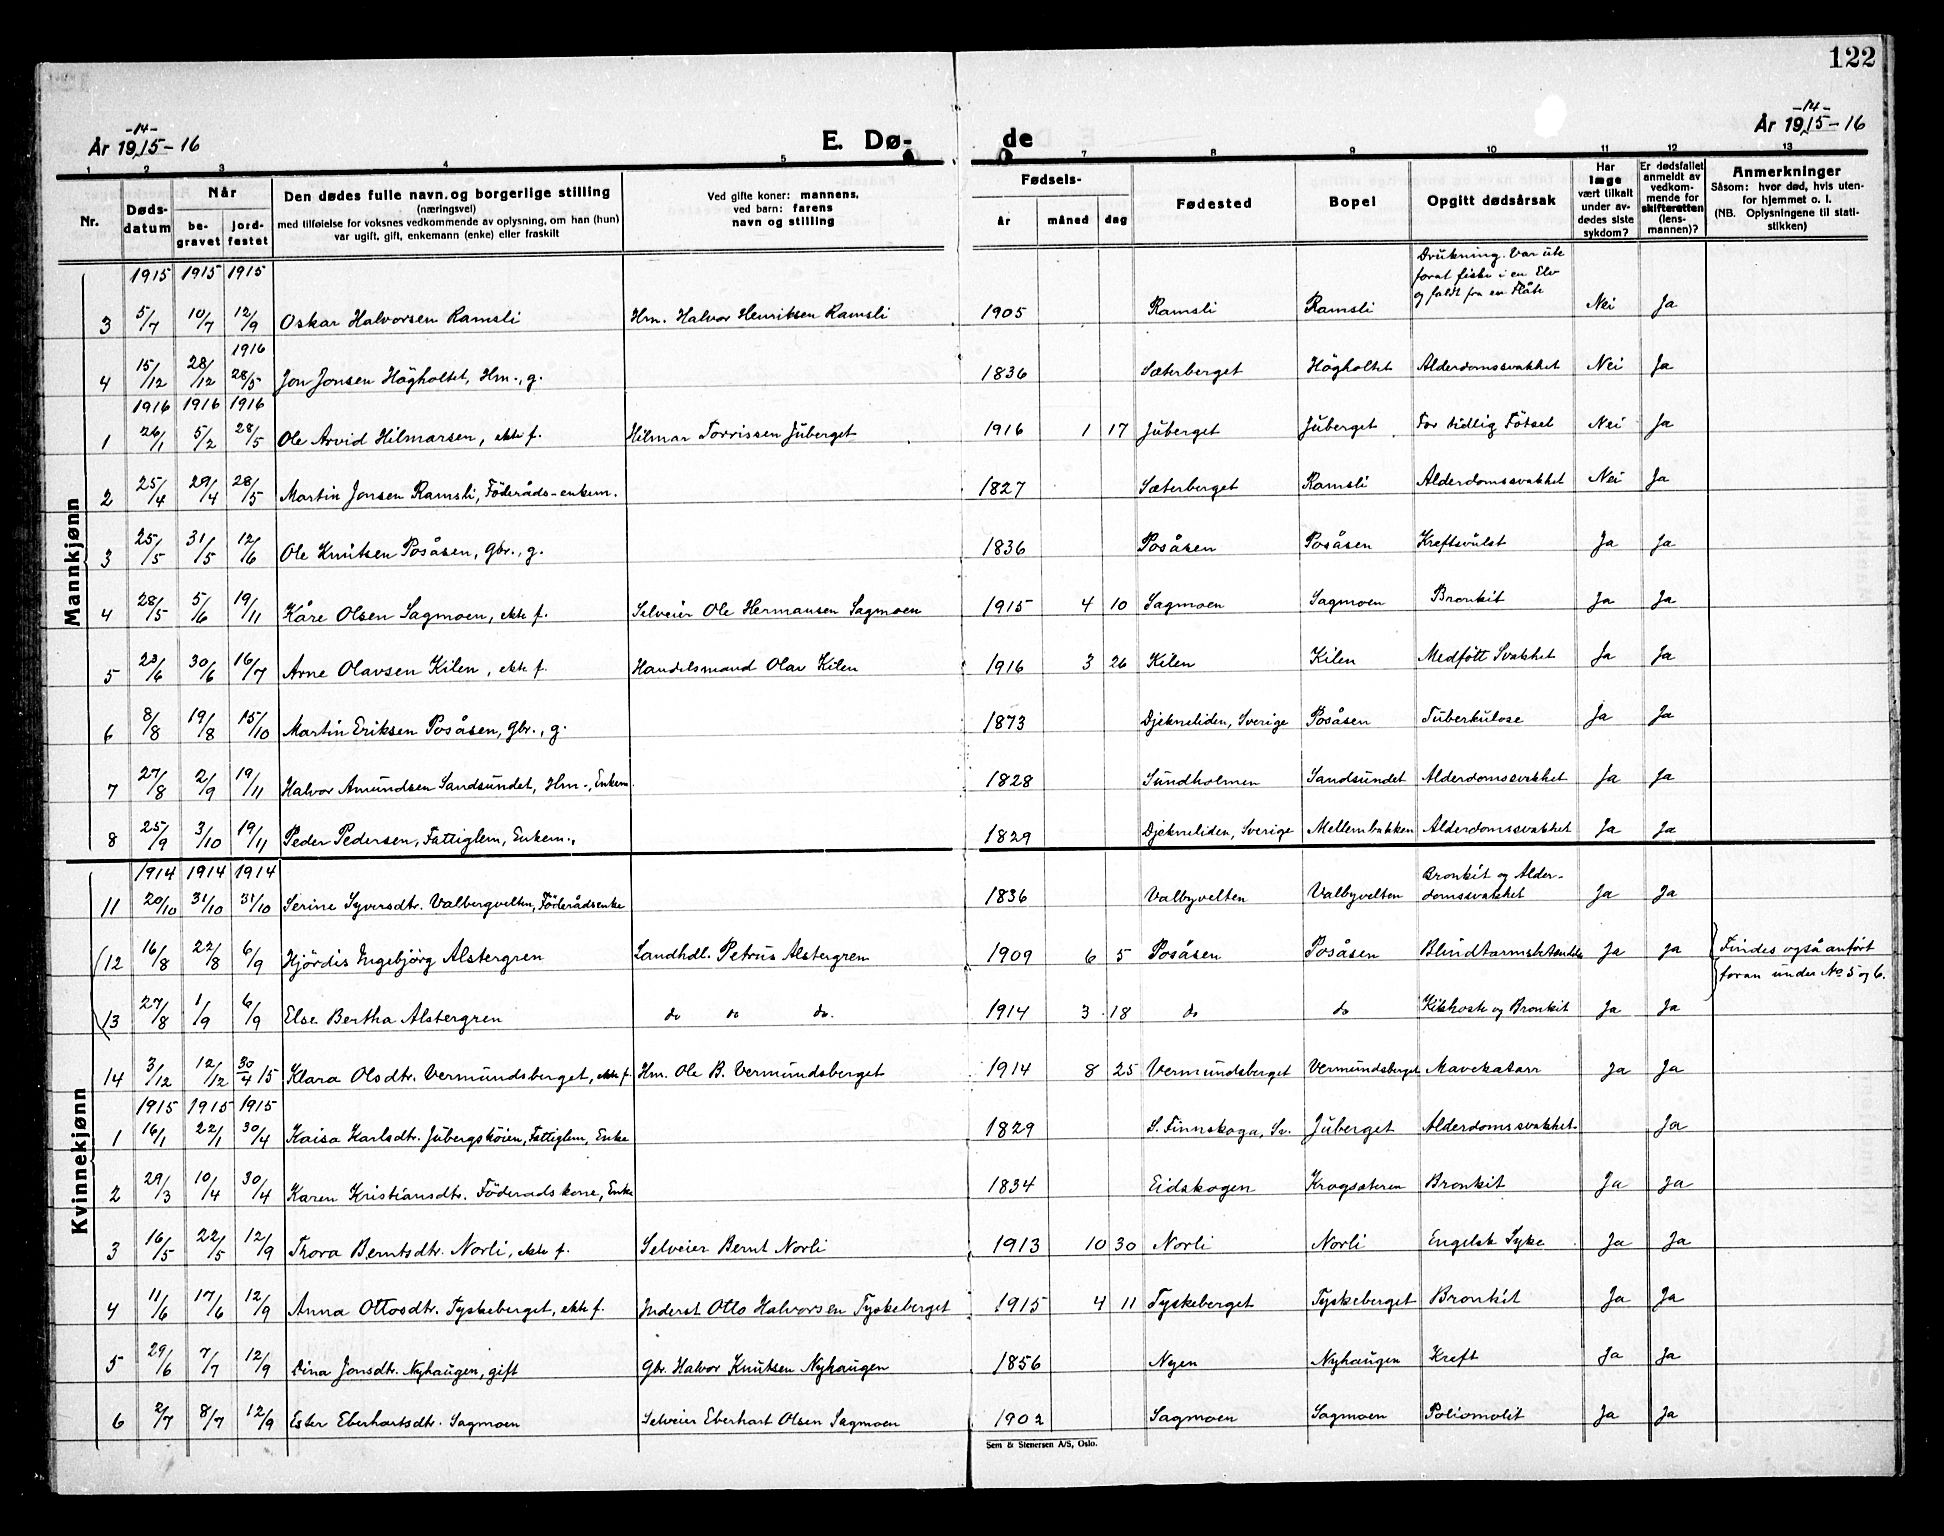 122
År 1915-16
-14-
E. Dø- de
År 1915-16
-14-
1 2 3 4 5 7 8 9 10 11 12 13
Nr.
Døds-
datum
Når
be-
gravet
jord-
festet
Den dødes fulle navn og borgerlige stilling
(næringsvei)
med tilføielse for voksnes vedkommende av oplysning, om han (hun)
var ugift, gift, enkemann (enke) eller fraskilt
Ved gifte koner: mannens,
ved barn: farens
navn og stilling
Fødsels-
år måned dag
Fødested
Bopel
Opgitt dødsårsak
Har
læge
vært tilkalt
under av-
dødes siste
sykdom?
Er dødsfallet
anmeldt av
vedkom-
mende for
skifteretten
(lens-
mannen)?
Anmerkninger
Såsom: hvor død, hvis uten-
for hjemmet o. l.
(NB. Oplysningene til stati-
stikken)
Mannkjønn
1915 1915 1915
3 5/7 10/7 12/9 Oskar Halvorsen Ramsli Hm. Halvor Henriksen Ramsli 1905 Ramsli Ramsli Drukning. Var ute
forat fiske i en Elv
og faldt fra en Flåte Nei Ja
1916
4 15/12 28/12 28/5 Jon Jonsen Högholtet, Hm., g. 1836 Sæterberget Högholtet Alderdomssvakhet Nei Ja
1916 1916 1916
1 26/1 5/2 28/5 Ole Arvid Hilmarsen, ekte f. Hilmar Torrissen Juberget 1916 1 17 Juberget Juberget For tidlig Fötsel Nei Ja
2 25/4 29/4 28/5 Martin Jonsen Ramsli, Föderåds-enkem. 1827 Sæterberget Ramsli Alderdomssvakhet Nei Ja
3 25/5 31/5 12/6 Ole Knutsen Posåsen, Gbr., g. 1836 Posåsen Posåsen Kreftsvulst Ja Ja
4 28/5 5/6 19/11 Kåre Olsen Sagmoen, ekte f. Selveier Ole Hermansen Sagmoen 1915 4 10 Sagmoen Sagmoen Bronkit Ja Ja
5 23/6 30/6 16/7 Arne Olavsen Kilen, ekte f. Handelsmand Olav Kilen 1916 3 26 Kilen Kilen Medfött Svakhet Ja Ja
6 8/8 19/8 15/10 Martin Eriksen Posåsen, Gbr., g. 1873 Djekneliden, Sverige Posåsen Tuberkulose Ja Ja
7 27/8 2/9 19/11 Halvor Amundsen Sandsundet, Hm., Enkem. 1828 Sundholmen Sandsundet Alderdomssvakhet Ja Ja
8 25/9 3/10 19/11 Peder Pedersen, Fattiglem, Enkem. 1829 Djekneliden, Sverige Mellembakken Alderdomssvakhet Ja Ja
Kvinnekjønn
1914 1914 1914
11 20/10 31/10 31/10 Serine Syversdtr. Valbergvelten, Föderådsenke 1836 Valbyvelten Valbyvelten Bronkit og Alder-
domssvakhet Ja Ja
(12 16/8 22/8 6/9 Hjördis Ingebjörg Alstergren Landhdl. Petrus Alstergren 1909 6 5 Posåsen Posåsen Blindtarmsbetændelse Ja Ja Findes også anfört
foran under No 5 og 6.
(13 27/8 1/9 6/9 Else Bertha Alstergren do do do. 1914 3 18 do do Kikhoste og Bronkit Ja Ja
14 3/12 12/12 30/4 15 Klara Olsdtr. Vermundsberget, ekte f. Hm. Ole B. Vermundsberget 1914 8 25 Vermundsberget Vermundsberget Mavekatarr Ja Ja
1915 1915 1915
1 16/1 22/1 30/4 Kaisa Karlsdtr. Jubergskoien, Fattiglem, Enke 1829 S. Finnskoga, Sv. Juberget Alderdomssvakhet Ja
2 29/3 10/4 30/4 Karen Kristiansdtr. Föderadskone, Enke 1834 Eidskogen Krogsæteren Bronkit Ja Ja
3 16/5 22/5 12/9 Thora Berntsdtr. Norli, ekte f. Selveier Bernt Norli 1913 10 30 Norli Norli Engelsk Syke Ja Ja
4 11/6 17/6 12/9 Anna Ottosdtr. Tyskeberget, ekte f. Inderst Otto Halvorsen Tyskeberget 1915 4 11 Tyskeberget Tyskeberget Bronkit Ja Ja
5 29/6 7/7 12/9 Dina Jonsdtr. Nyhaugen, gift Gbr. Halvor Knutsen Nyhaugen 1856 Nyen Nyhaugen Kreft Ja Ja
6 2/7 8/7 12/9 Ester Eberhartsdtr. Sagmoen Selveier Eberhart Olsen Sagmoen 1902 Sagmoen Sagmoen Poliomolit Ja Ja
Sem & Stenersen A/S, Oslo.